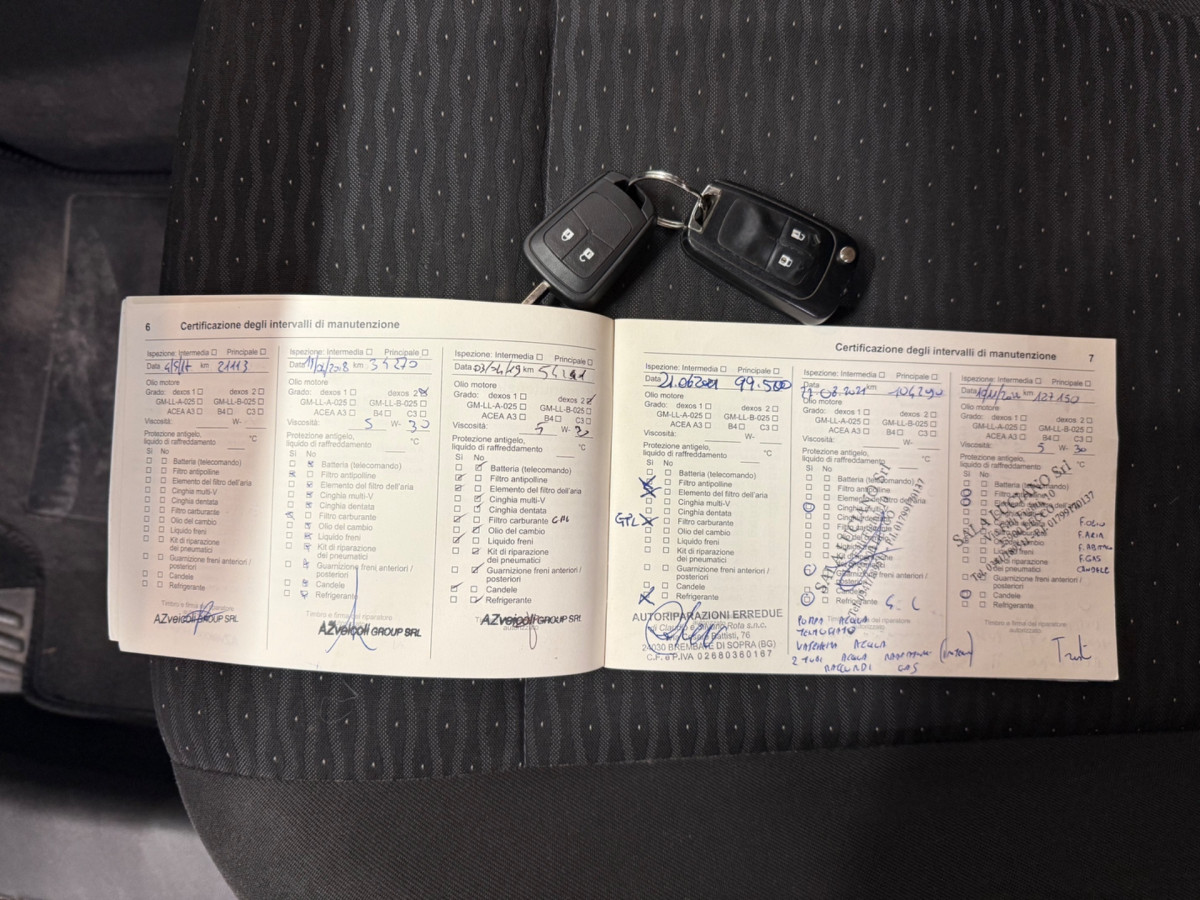 6 Certificazione degli intervalli di manutenzione
Ispezione: Intermedia Principale
Data 4/5/17 km 21113
Olio motore
Grado: dexos 1 dexos 2
GM-LL-A-025 GM-LL-B-025
ACEA A3 B4 C3
Viscosità: W-
Protezione antigelo, °C
liquido di raffreddamento
Sì No
Batteria (telecomando)
Filtro antipolline
Elemento del filtro dell'aria
Cinghia multi-V
Cinghia dentata
Filtro carburante
Olio del cambio
Liquido freni
Kit di riparazione
dei pneumatici
Guarnizione freni anteriori /
posteriori
Candele
Refrigerante
Timbro e firma del riparatore
AZveicoli GROUP SRL
Ispezione: Intermedia Principale
Data 2018 km 34270
Olio motore
Grado: dexos 1 dexos 2
GM-LL-A-025 GM-LL-B-025
ACEA A3 B4 C3
Viscosità: 5 W- 30
Protezione antigelo, °C
liquido di raffreddamento
Sì No
Batteria (telecomando)
Filtro antipolline
Elemento del filtro dell'aria
Cinghia multi-V
Cinghia dentata
Filtro carburante
Olio del cambio
Liquido freni
Kit di riparazione
dei pneumatici
Guarnizione freni anteriori /
posteriori
Candele
Refrigerante
Timbro e firma del riparatore
AZveicoli GROUP SRL
Ispezione: Intermedia Principale
Data 03/04/19 km
Olio motore
Grado: dexos 1 dexos 2
GM-LL-A-025 GM-LL-B-025
ACEA A3 B4 C3
Viscosità: 5 W- 30
Protezione antigelo, °C
liquido di raffreddamento
Sì No
Batteria (telecomando)
Filtro antipolline
Elemento del filtro dell'aria
Cinghia multi-V
Cinghia dentata
Filtro carburante
Olio del cambio
Liquido freni
Kit di riparazione
dei pneumatici
Guarnizione freni anteriori /
posteriori
Candele
Refrigerante
AZveicoli GROUP SRL
Certificazione degli intervalli di manutenzione 7
Ispezione: Intermedia Principale
Data 21.06.2021 99.500
Olio motore
Grado: dexos 1 dexos 2
GM-LL-A-025 GM-LL-B-025
ACEA A3 B4 C3
Viscosità: W-
Protezione antigelo, °C
liquido di raffreddamento
Sì No
Batteria (telecomando)
Filtro antipolline
Elemento del filtro dell'aria
Cinghia multi-V
Cinghia dentata
Filtro carburante
Olio del cambio
Liquido freni
Kit di riparazione
dei pneumatici
Guarnizione freni anteriori /
posteriori
Candele
Refrigerante
AUTORIPARAZIONI ERREDUE
Rota s.n.c.
Battisti, 76
24030 BREMBATE DI SOPRA (BG)
C.F. e P.IVA 02680360167
Ispezione: Intermedia Principale
Data 08.2021 km 104290
Olio motore
Grado: dexos 1 dexos 2
GM-LL-A-025 GM-LL-B-025
ACEA A3 B4 C3
Viscosità: W-
Protezione antigelo, °C
liquido di raffreddamento
Sì No
Batteria (telecomando)
Filtro antipolline
Cinghia
Refrigerante
POMPA ACQUA
TERMOSTATO
ACQUA
2 TUBI ACQUA
RACCORDI GAS
Ispezione: Intermedia Principale
Data km 123150
Olio motore
Grado: dexos 1 dexos 2
GM-LL-A-025 GM-LL-B-025
ACEA A3 B4 C3
Viscosità: 5 W- 30
Protezione antigelo, °C
liquido di raffreddamento
Sì No
Batteria (telecomando)
SALA LUCIANO Srl
F. OLIO
F. ARIA
F. GAS
CANDELE
Guarnizione freni anteriori /
posteriori
Candele
Refrigerante
Timbro e firma del riparatore
autorizzato